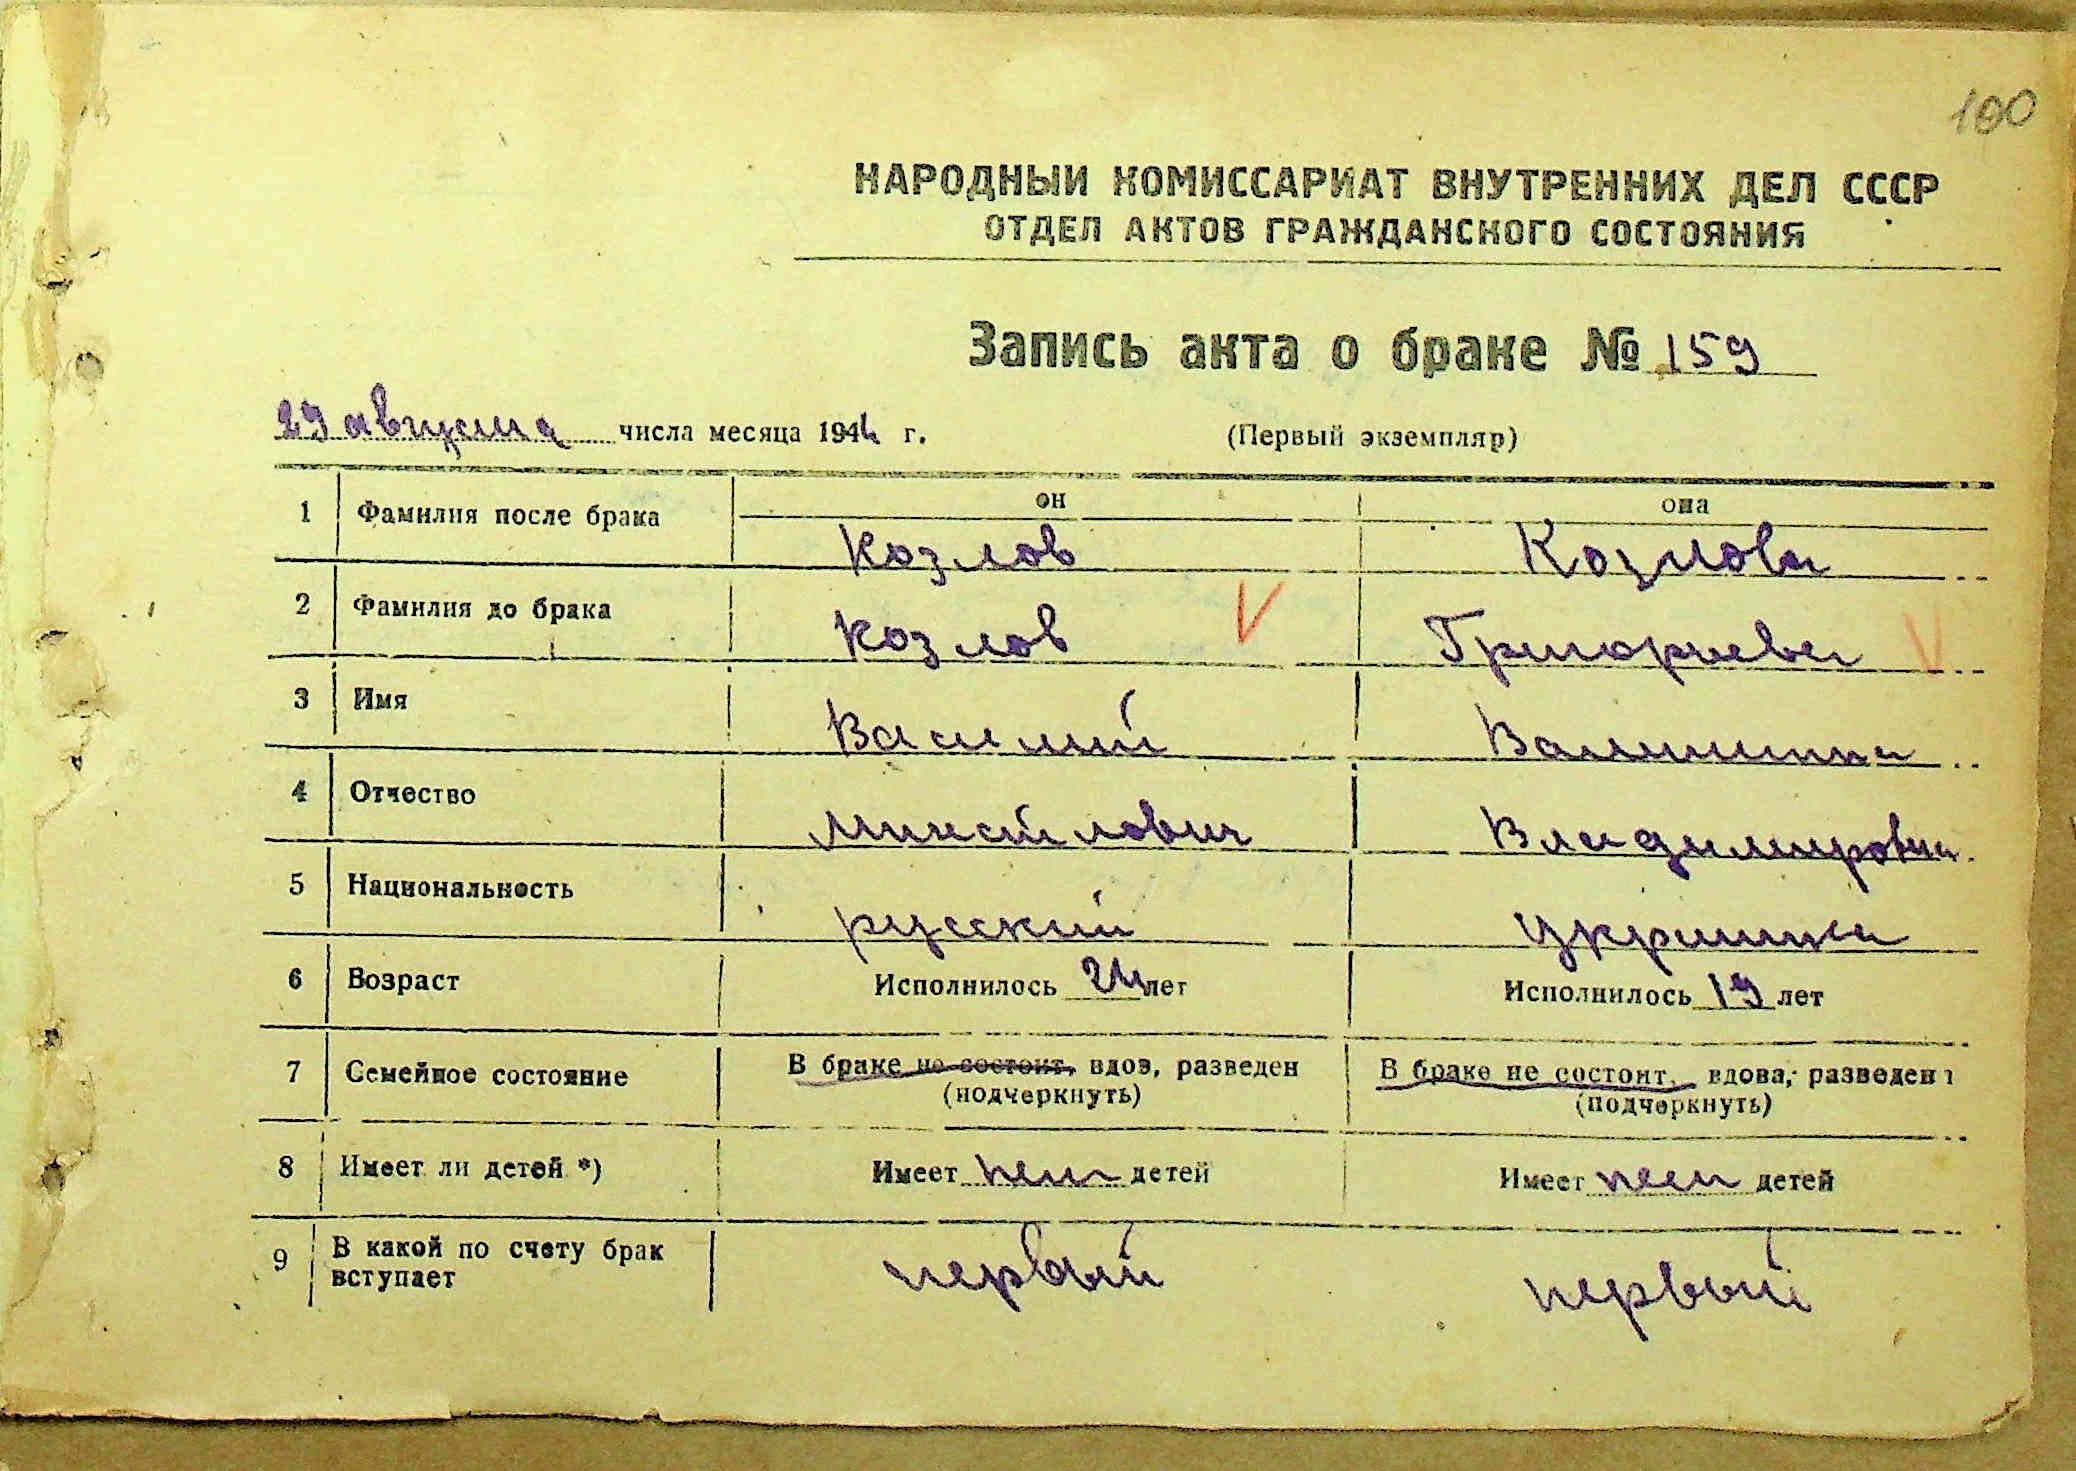 100
НАРОДНЫЙ КОМИССАРИАТ ВНУТРЕННИХ ДЕЛ СССР
ОТДЕЛ АКТОВ ГРАЖДАНСКОГО СОСТОЯНИЯ
Запись акта о браке № 159
29 августа числа месяца 1944 г. (Первый экземпляр)
он она
1 Фамилия после брака Козлов Козлова
2 Фамилия до брака Козлов Григорьева
3 Имя Василий Валентина
4 Отчество Владимировна
5 Национальность русский украинка
6 Возраст Исполнилось 24 лет Исполнилось 19 лет
7 Семейное состояние В браке не состоит, вдов, разведен В браке не состоит, вдова, разведен
(подчеркнуть) (подчеркнуть)
8 Имеет ли детей *) Имеет нет детей Имеет нет детей
9 В какой по счету брак вступает первый первый